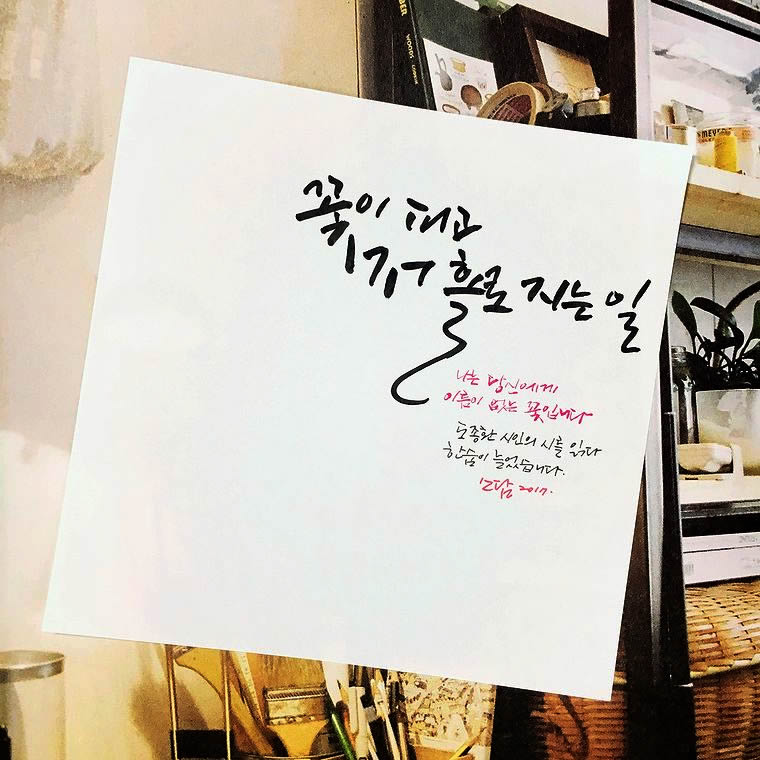 꽃이 피고
저 홀로 지는 일
나는 당신에게
이름이 없는 꽃입니다
도종환 시인의 시를 읽다
한숨이 늘었습니다.
2017.
WOODS
MEYER